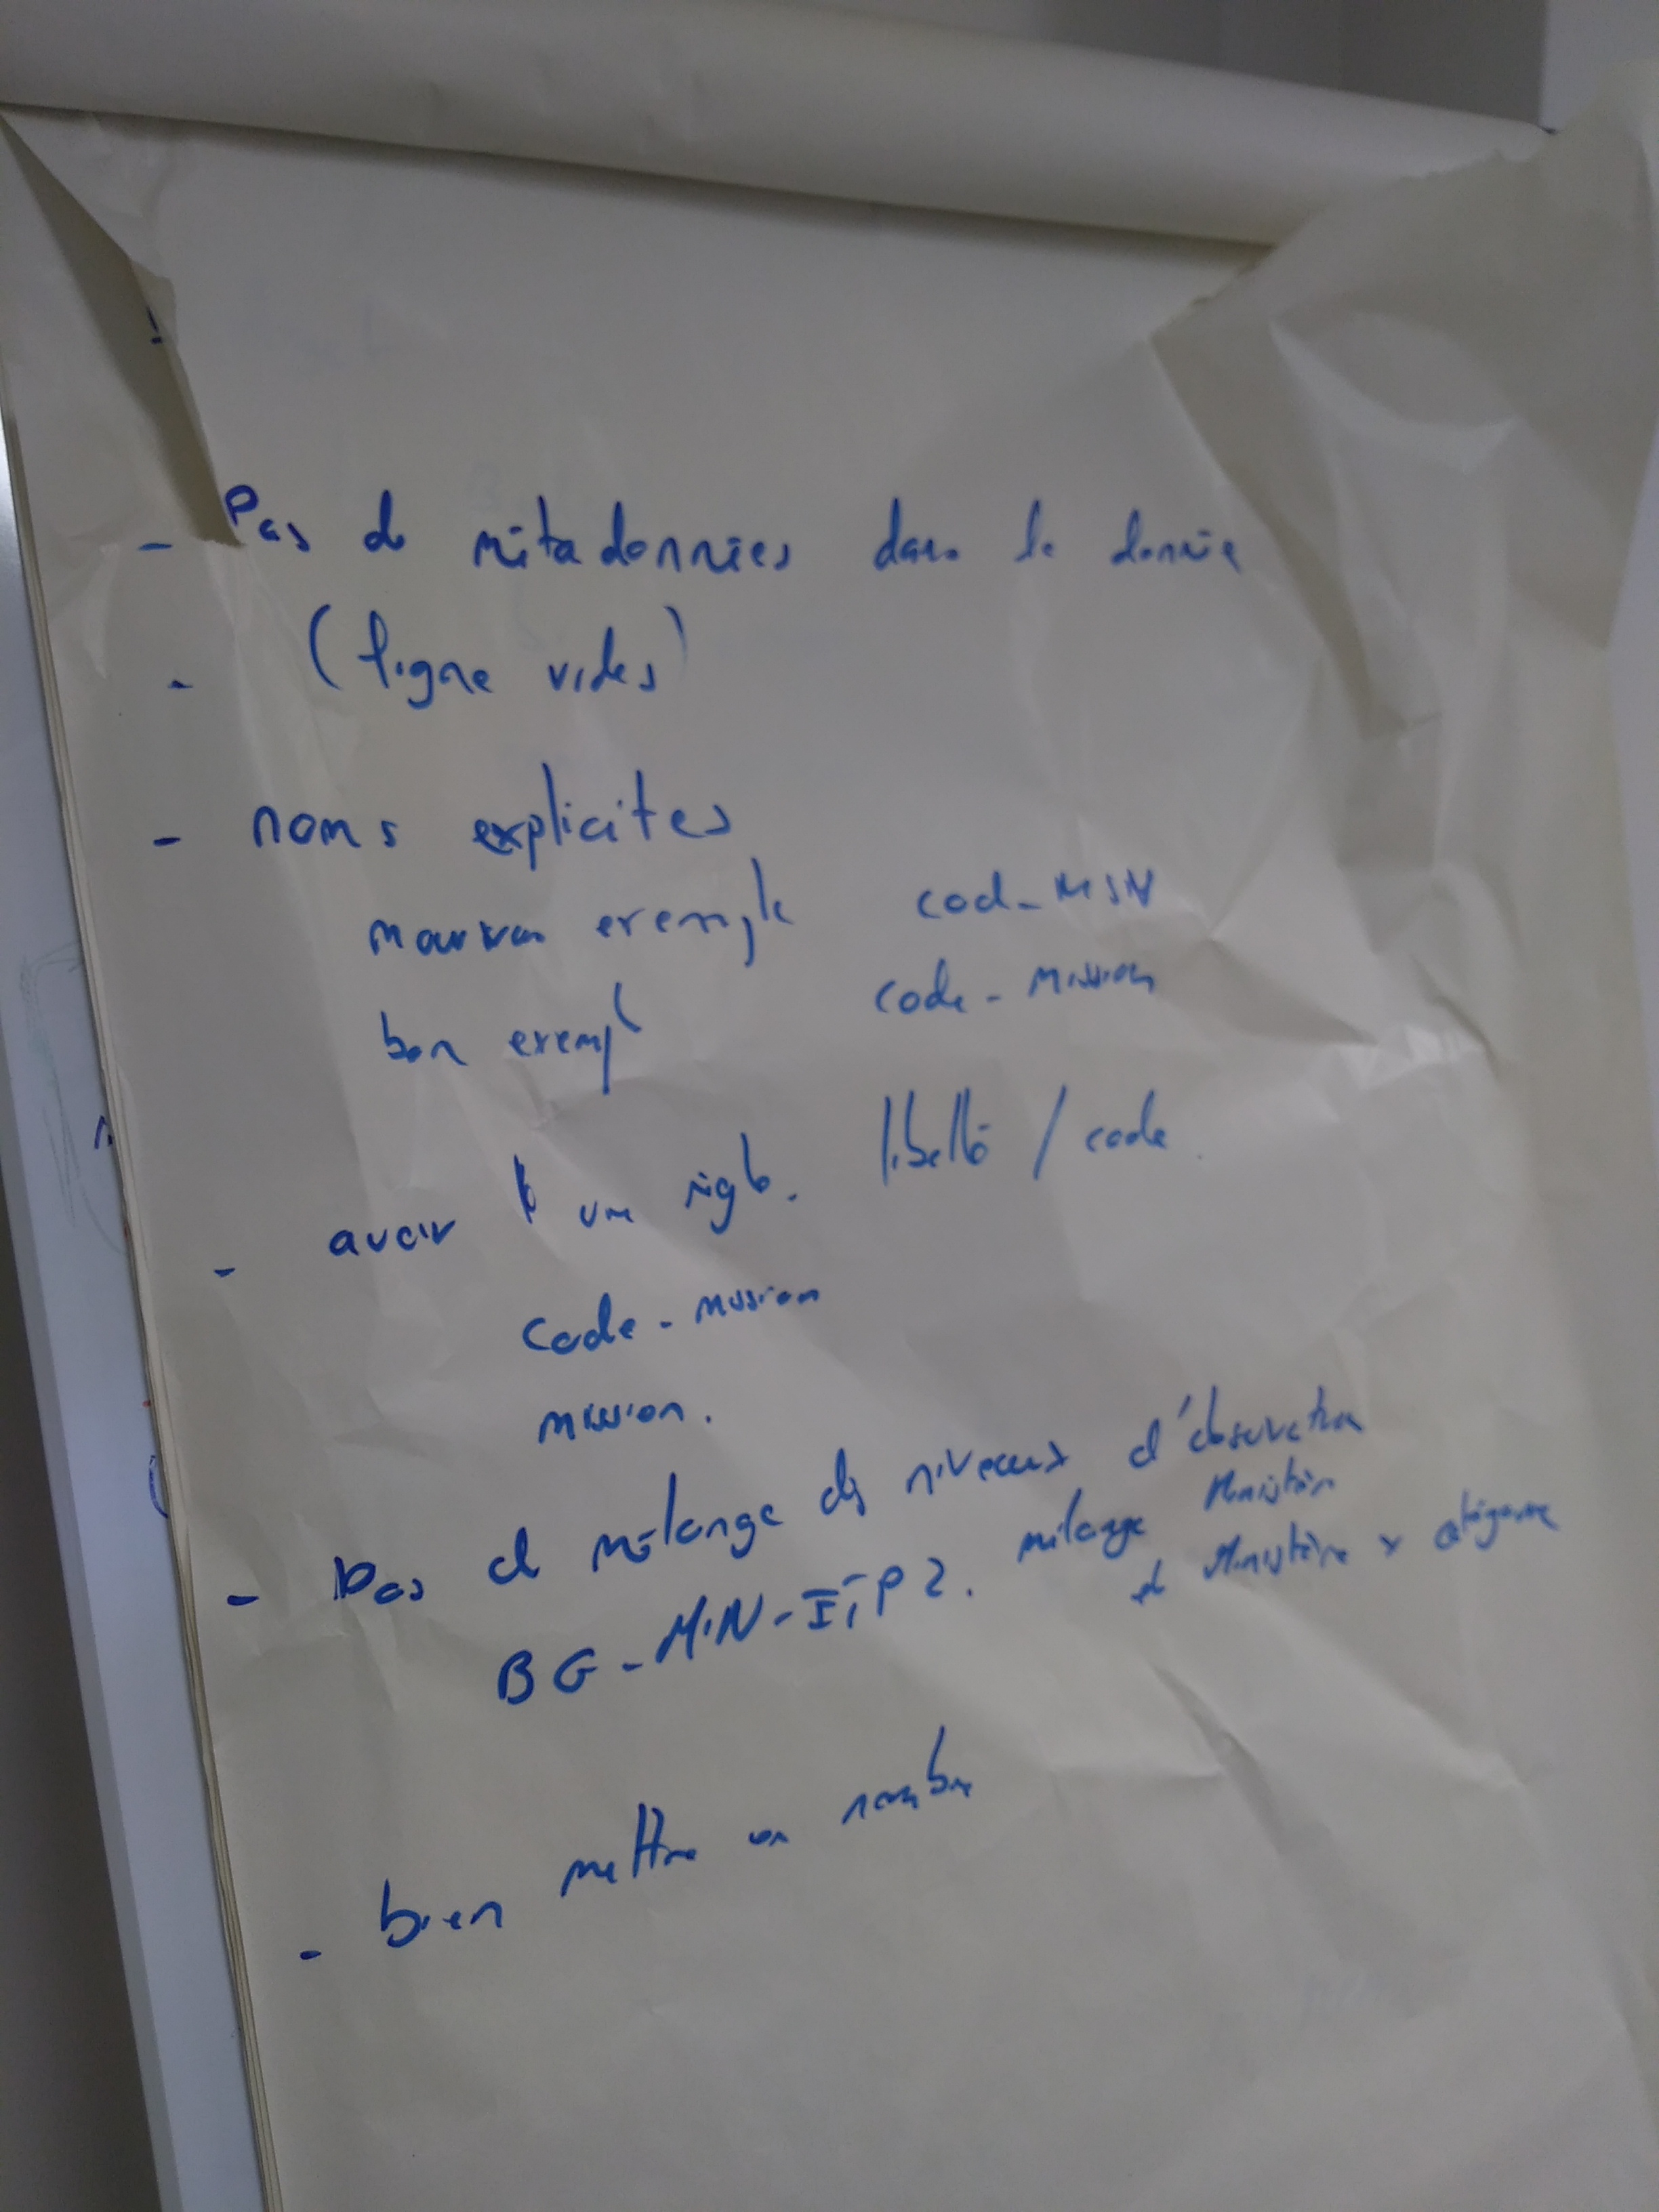 - Pas de métadonnées dans la donnée
- (ligne vides)
- noms explicites
mauvais exemple cod_MSN
bon exemple code_mission
- avoir une règle. libellé / code
code_mission
mission.
- Pas de mélange des niveaux d'observation
BG-MIN-TIP2. mélange Ministère
et Ministère x catégorie
- bien mettre en nombre